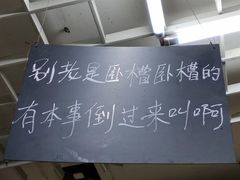 别老是卧槽卧槽的
有本事倒过来叫啊